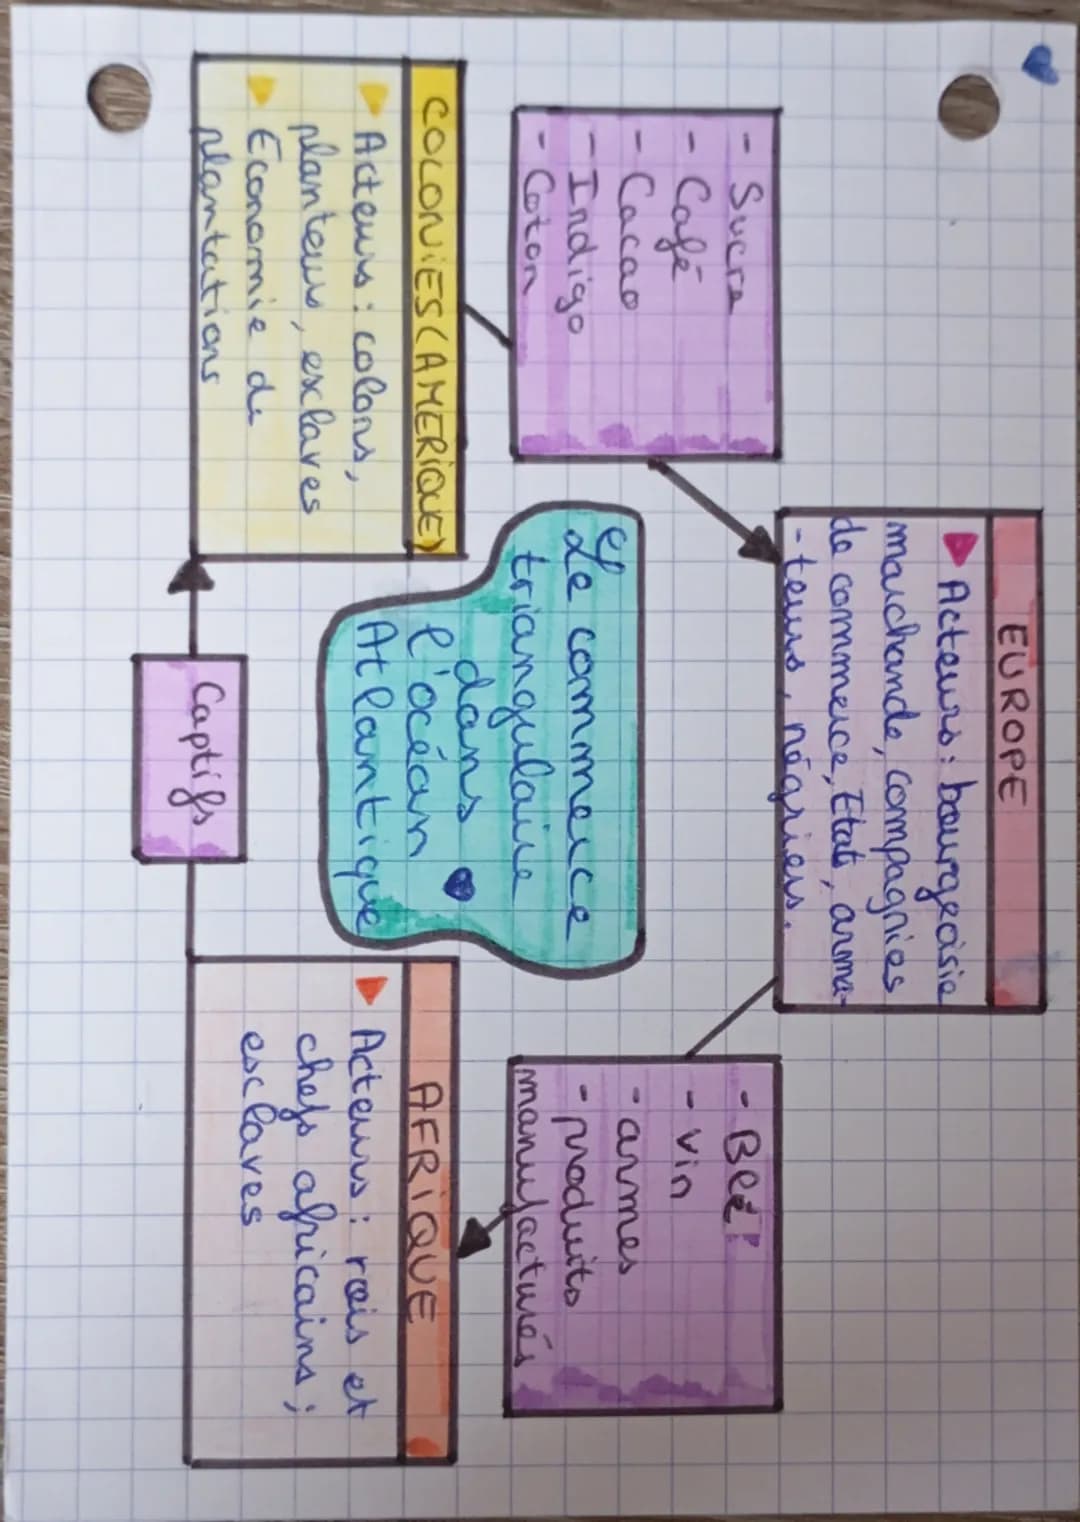 EUROPE
Acteurs : bourgeoisie
marchande, compagnies
de commerce, Etats, arma-
-teurs, négriers.
- Sucre
- Café
- Cacao
- Indigo
- Coton
- Blé
- Vin
- armes
- produits
manufacturés
Le commerce
triangulaire
dans
l'océan
Atlantique
COLONIES (AMERIQUE)
Acteurs : colons,
planteurs, esclaves
Economie de
plantations
AFRIQUE
Acteurs : rois et
chefs africains ;
esclaves
Captifs